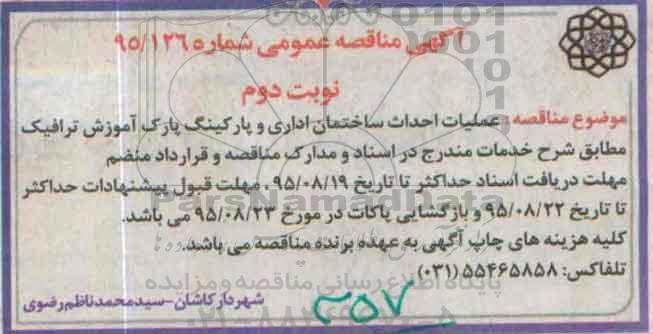 آگهی مناقصه عمومی شماره ۹۵/۱۲۶
نوبت دوم
موضوع مناقصه : عملیات احداث ساختمان اداری و پارکینگ پارک آموزش ترافیک
مطابق شرح خدمات مندرج در اسناد و مدارک مناقصه و قرارداد منضم
مهلت دریافت اسناد حداکثر تا تاریخ ۹۵/۰۸/۱۹ ، مهلت قبول پیشنهادات حداکثر
تا تاریخ ۹۵/۰۸/۲۲ و بازگشایی پاکات در مورخ ۹۵/۰۸/۲۳ می باشد.
کلیه هزینه های چاپ آگهی به عهده برنده مناقصه می باشد.
تلفاکس: ۵۵۴۶۵۸۵۸ (۰۳۱)
شهردار کاشان-سیدمحمدناظم رضوی
ParsNamadData
پایگاه اطلاع رسانی مناقصه و مزایده